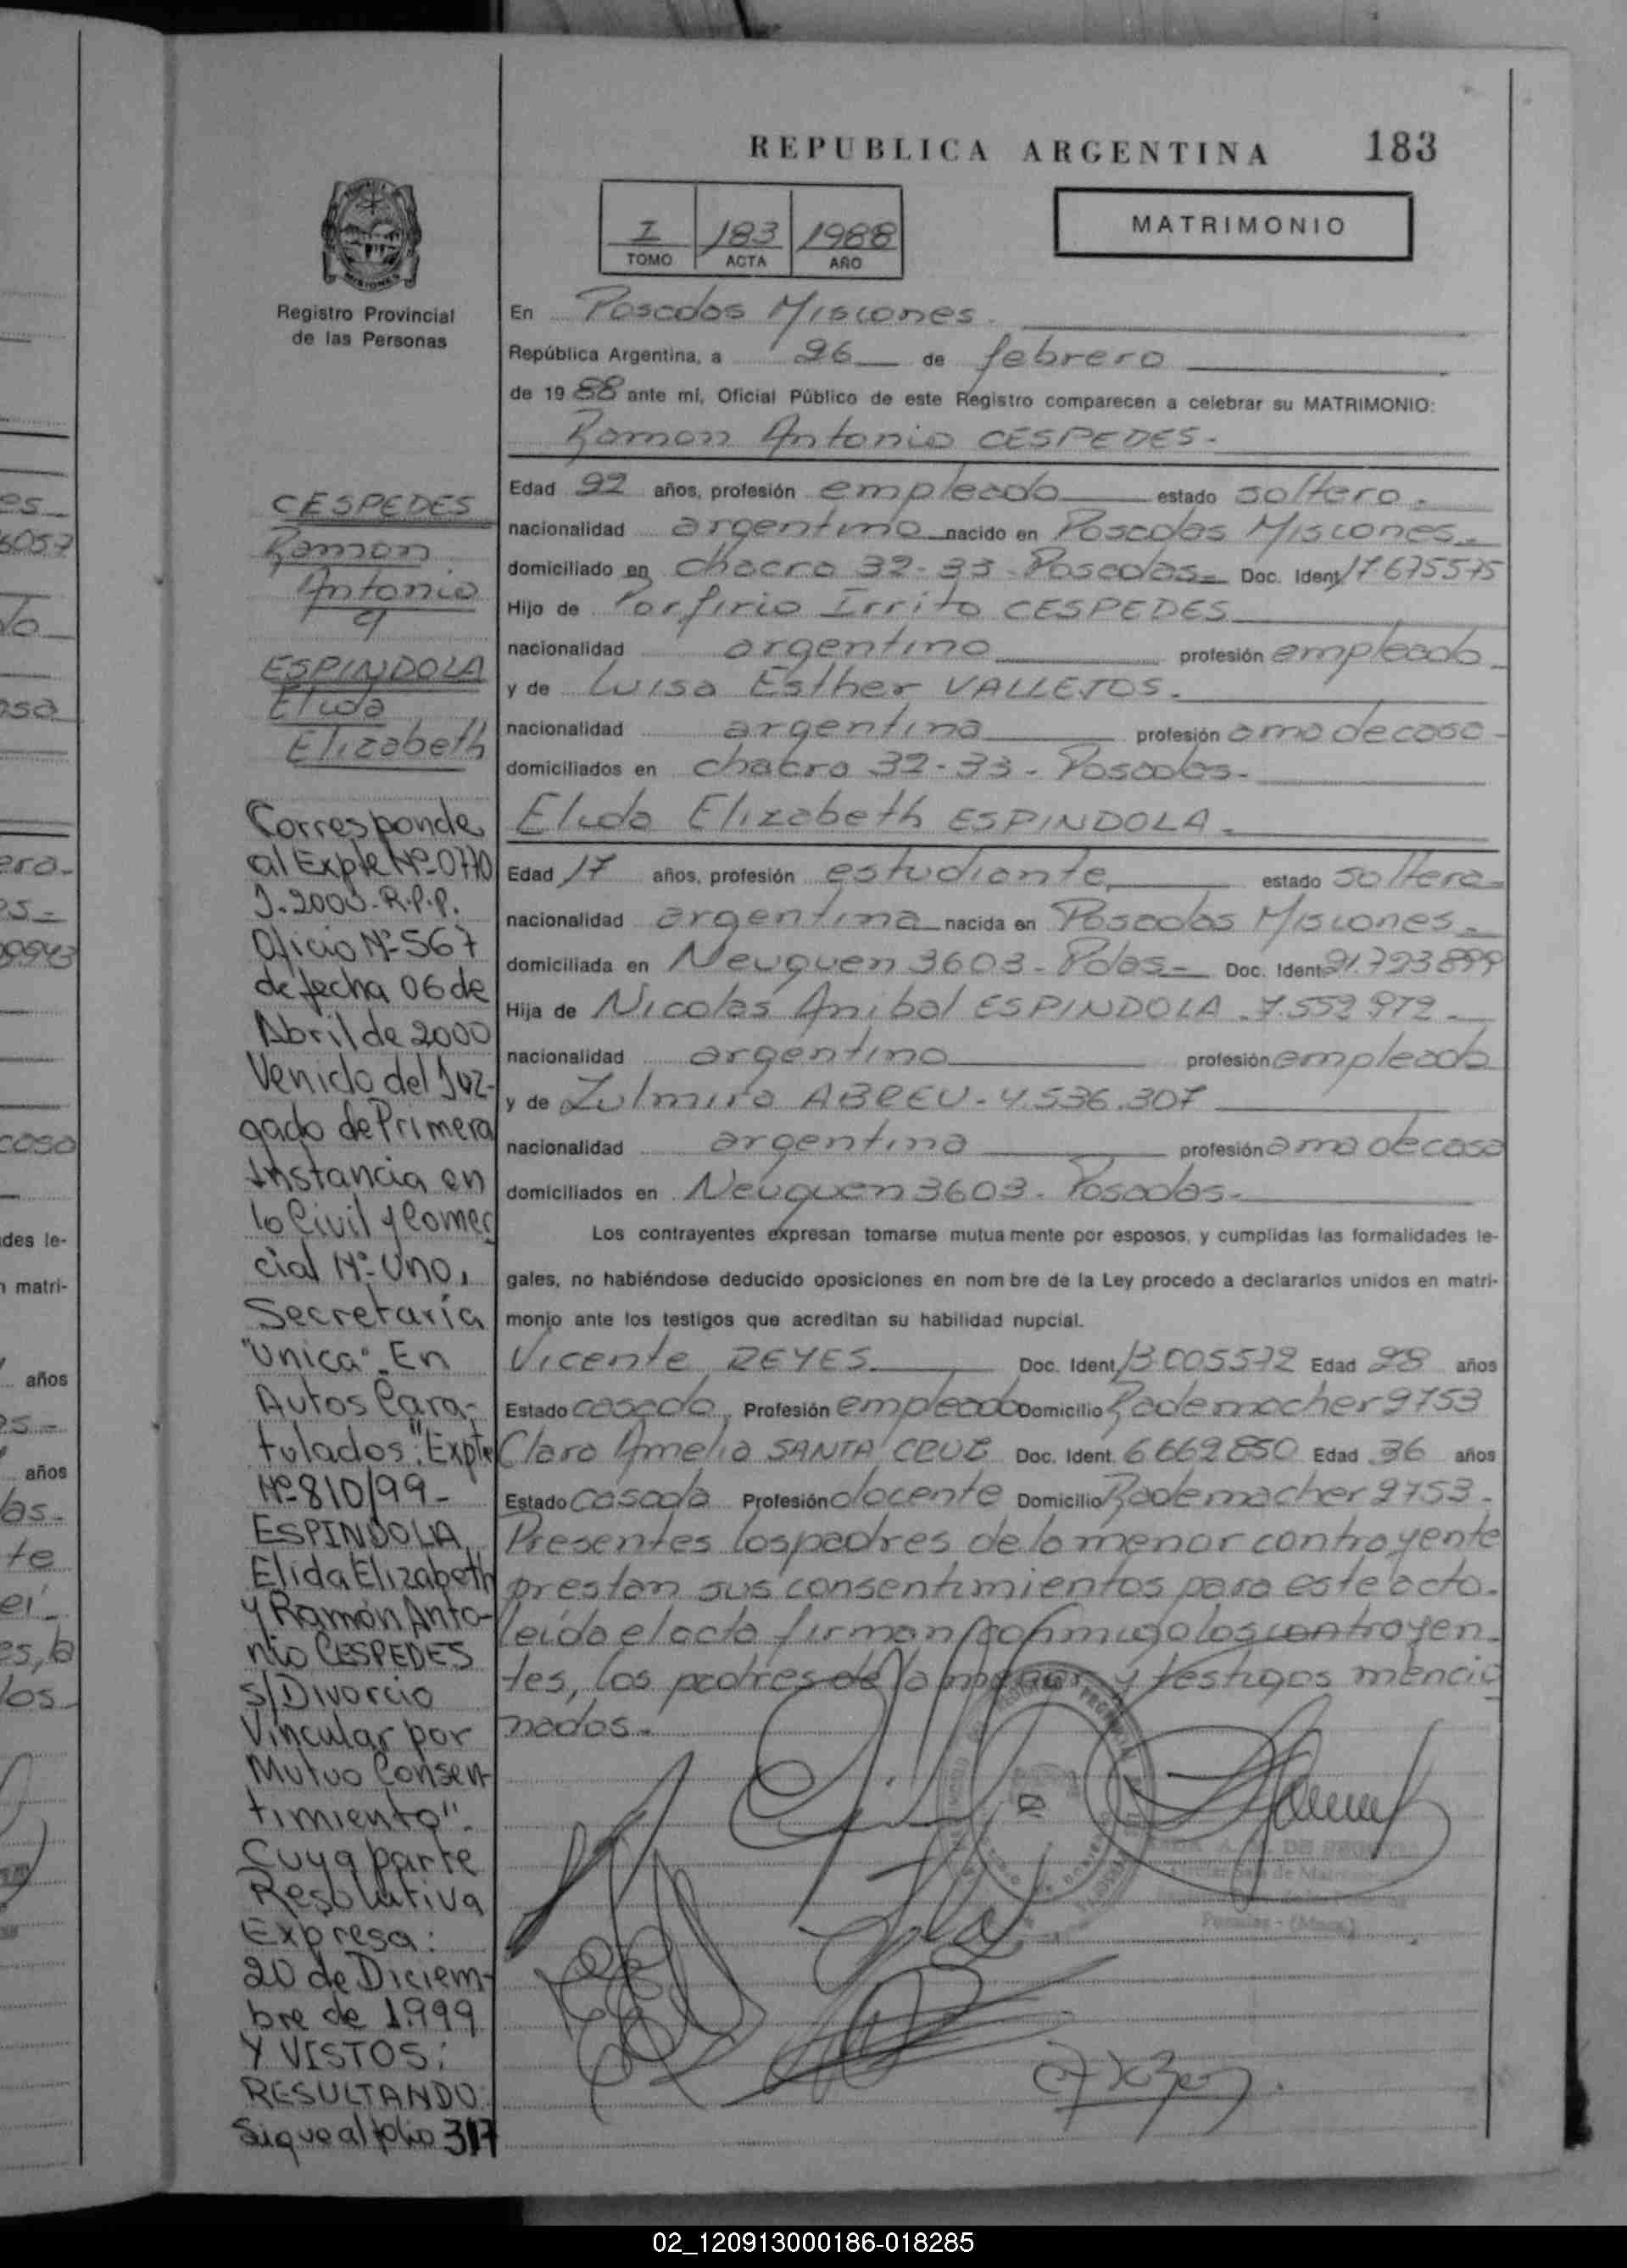 REPUBLICA ARGENTINA 183
I 183 1988
TOMO ACTA AÑO
MATRIMONIO
Registro Provincial
de las Personas
En Posadas Misiones.
República Argentina, a 26 de febrero
de 1988 ante mí, Oficial Público de este Registro comparecen a celebrar su MATRIMONIO:
Ramon Antonio CESPEDES.-
Edad 22 años, profesión empleado estado soltero.
nacionalidad argentino nacido en Posadas Misiones.
domiciliado en chacra 32-33-Posadas- Doc. Ident. 17.675575
Hijo de Porfirio Irrito CESPEDES
nacionalidad argentino profesión empleado
y de Luisa Esther VALLEJOS.
nacionalidad argentina profesión ama de casa
domiciliados en chacra 32-33- Posadas-
Elida Elizabeth ESPINDOLA-
Edad 17 años, profesión estudiante estado soltera-
nacionalidad argentina nacida en Posadas Misiones-
domiciliada en Neuquen 3603- Pdas- Doc. Ident. 21.723899
Hija de Nicolas Anibal ESPINDOLA-7.552.972-
nacionalidad argentino profesión empleado
y de Zulmira ABREU-4.536.307
nacionalidad argentina profesión ama de casa
domiciliados en Neuquen 3603- Posadas-
Los contrayentes expresan tomarse mutuamente por esposos, y cumplidas las formalidades le-
gales, no habiéndose deducido oposiciones en nombre de la Ley procedo a declararlos unidos en matri-
monio ante los testigos que acreditan su habilidad nupcial.
Vicente REYES Doc. Ident. 13.005572 Edad 28 años
Estado casado, Profesión empleado Domicilio Rademacher 2753
Clara Amelia SANTA CRUZ Doc. Ident. 6669850 Edad 36 años
Estado casada Profesión docente Domicilio Rademacher 2753-
Presentes los padres de la menor contrayente
prestan sus consentimientos para este acto.
leída el acta firman conmigo los contrayen-
tes, los padres de la menor y testigos mencio
nados.-
CESPEDES
Ramon
Antonio
y
ESPINDOLA
Elida
Elizabeth
Corresponde
al Expte Nº-0770
J-2000-R.P.P.
Oficio Nº-567
de fecha 06 de
Abril de 2000
Venido del Juz-
gado de Primera
Instancia en
lo Civil y Comer
cial Nº-Uno,
Secretaría
"Unica". En
Autos Cara-
tulados: "Expte
Nº-810/99-
ESPINDOLA
Elida Elizabeth
y Ramón Anto-
nio CESPEDES
s/Divorcio
Vincular por
Mutuo Consen-
timiento".
Cuya parte
Resolutiva
Expresa:
20 de Diciem-
bre de 1.999
Y VISTOS:
RESULTANDO:
Sigue al folio 317
02_120913000186-018285